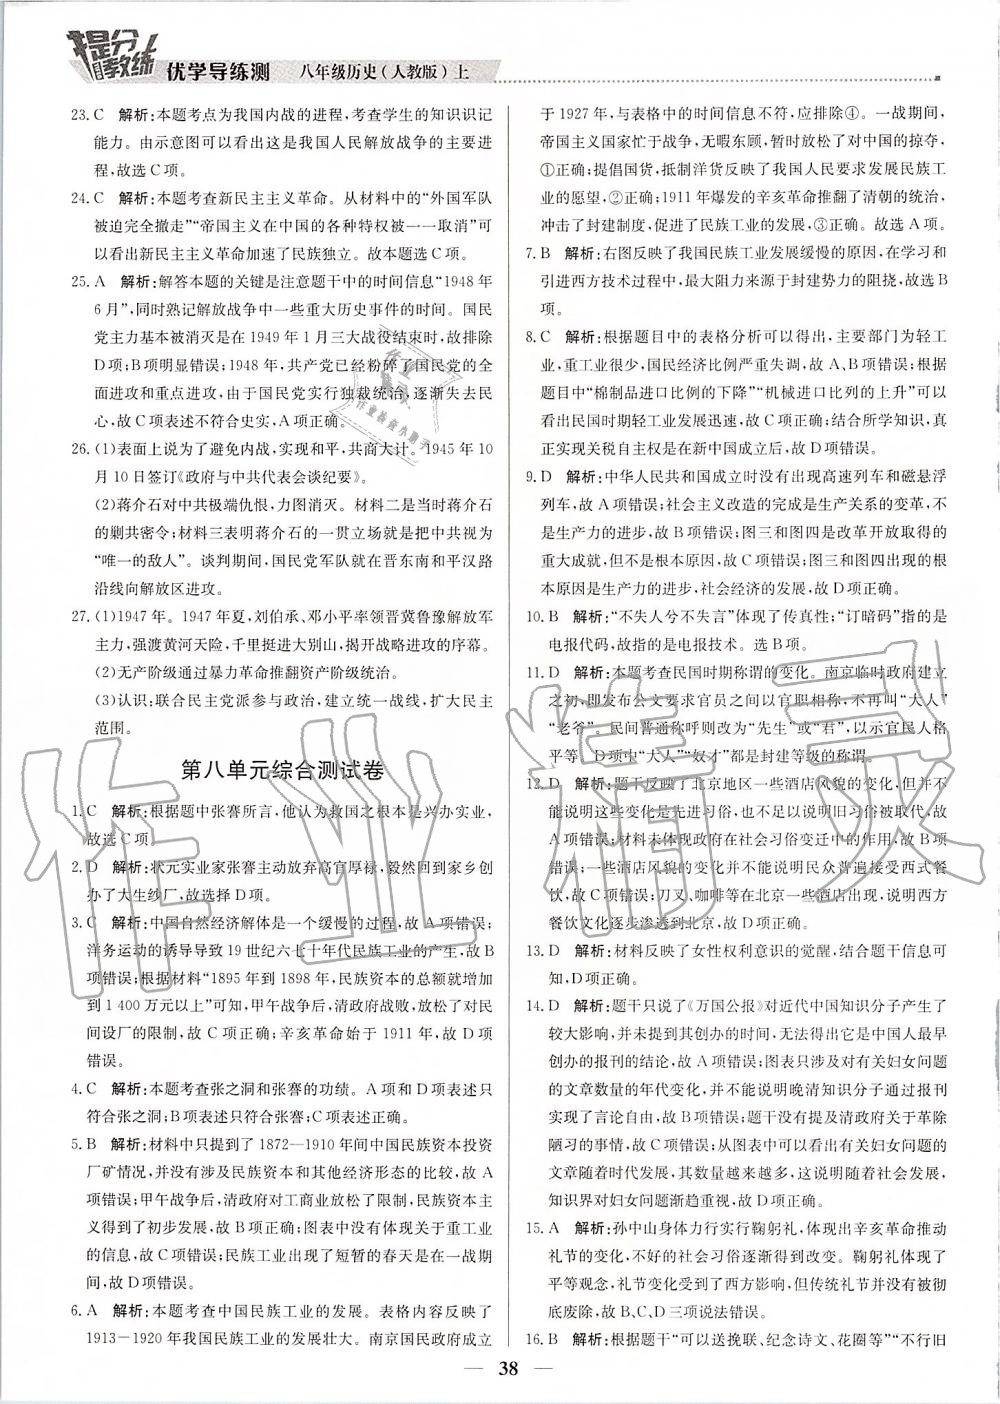 提分教练
优学导练测 八年级历史(人教版)上
23. C 解析:本题考点为我国内战的进程,考查学生的知识识记
能力。由示意图可以看出这是我国人民解放战争的主要进
程,故选C项。
24. C 解析:本题考查新民主主义革命。从材料中的“外国军队
被迫完全撤走”“帝国主义在中国的各种特权被一一取消”可
以看出新民主主义革命加速了民族独立。故本题选C项。
25. A 解析:解答本题的关键是注意题干中的时间信息“1948年
6月”,同时熟记解放战争中一些重大历史事件的时间。国民
党主力基本被消灭是在1949年1月三大战役结束时,故排除
D项;B项明显错误;1948年,共产党已经粉碎了国民党的全
面进攻和重点进攻,由于国民党实行独裁统治,逐渐失去民
心,故C项表述不符合史实,A项正确。
26. (1)表面上说为了避免内战,实现和平,共商大计。1945年10
月10日签订《政府与中共代表会谈纪要》。
(2)蒋介石对中共极端仇恨,力图消灭。材料二是当时蒋介石
的剿共密令;材料三表明蒋介石的一贯立场就是把中共视为
“唯一的敌人”。谈判期间,国民党军队就在晋东南和平汉路
沿线向解放区进攻。
27. (1)1947年。1947年夏,刘伯承、邓小平率领晋冀鲁豫解放军
主力,强渡黄河天险,千里挺进大别山,揭开战略进攻的序幕。
(2)无产阶级通过暴力革命推翻资产阶级统治。
(3)认识:联合民主党派参与政治,建立统一战线,扩大民主
范围。
第八单元综合测试卷
1. C 解析:根据题中张謇所言,他认为救国之根本是兴办实业,
故选C项。
2. D 解析:状元实业家张謇主动放弃高官厚禄,毅然回到家乡创
办了大生纱厂,故选择D项。
3. C 解析:中国自然经济解体是一个缓慢的过程,故A项错误;
洋务运动的诱导导致19世纪六七十年代民族工业的产生,故B
项错误;根据材料“1895年到1898年,民族资本的总额就增加
到1 400万元以上”可知,甲午战争后,清政府战败,放松了对民
间设厂的限制,故C项正确;辛亥革命始于1911年,故D项
错误。
4. C 解析:本题考查张之洞和张謇的功绩。A项和D项表述只
符合张之洞;B项表述只符合张謇;C项表述正确。
5. B 解析:材料中只提到了1872—1910年间中国民族资本投资
厂矿情况,并没有涉及民族资本和其他经济形态的比较,故A
项错误;甲午战争后,清政府对工商业放松了限制,民族资本主
义得到了初步发展,故B项正确;图表中没有体现关于重工业
的信息,故C项错误;民族工业出现了短暂的春天是在一战期
间,故D项错误。
6. A 解析:本题考查中国民族工业的发展。表格内容反映了
1913—1920年我国民族工业的发展壮大。南京国民政府成立
于1927年,与表格中的时间信息不符,应排除④。一战期间,
帝国主义国家忙于战争,无暇东顾,暂时放松了对中国的掠夺,
①正确;提倡国货,抵制洋货反映了我国人民要求发展民族工
业的愿望,②正确;1911年爆发的辛亥革命推翻了清朝的统治,
冲击了封建制度,促进了民族工业的发展,③正确。故选A项。
7. B 解析:右图反映了我国民族工业发展缓慢的原因,在学习和
引进西方技术过程中,最大阻力来源于封建势力的阻挠,故选B
项。
8. C 解析:根据题目中的表格分析可以得出,主要部门为轻工
业,重工业很少,国民经济比例严重失调,故A、B项错误;根据
题目中“棉制品进口比例的下降”“机械进口比列的上升”可以
看出民国时期轻工业发展迅速,故C项正确;结合所学知识,真
正实现关税自主权是在新中国成立后,故D项错误。
9. D 解析:中华人民共和国成立时没有出现高速列车和磁悬浮
列车,故A项错误;社会主义改造的完成是生产关系的变革,不
是生产力的进步,故B项错误;图三和图四是改革开放取得的
重大成就,但不是根本原因,故C项错误;图三和图四出现的根
本原因是生产力的进步,社会经济的发展,故D项正确。
10. B 解析:“不失人兮不失言”体现了传真性;“订暗码”指的是
电报代码,故指的是电报技术。选B项。
11. D 解析:本题考查民国时期称谓的变化。南京临时政府建立
之初,即发布公文要求官员之间以官职相称,不再叫“大人”
“老爷”,民间普通称呼则改为“先生”或“君”,以示官民人格
平等。D项中“大人”“奴才”都是封建等级的称谓。
12. D 解析:题干反映了北京地区一些酒店风貌的变化,但并不
能说明这些变化是先进习俗,也不足以说明旧习俗被取代,故
A项错误;材料未体现政府在社会习俗变迁中的作用,故B项
错误;一些酒店风貌的变化并不能说明民众普遍接受西式餐
饮,故C项错误;刀叉、咖啡等在北京一些酒店出现,说明西方
餐饮文化逐步渗透到北京,故D项正确。
13. D 解析:材料反映了女性权利意识的觉醒,结合题干信息可
知,D项正确。
14. D 解析:题干只说了《万国公报》对近代中国知识分子产生了
较大影响,并未提到其创办的时间,无法得出它是中国人最早
创办的报刊的结论,故A项错误;图表只涉及对有关妇女问题
的文章数量的年代变化,并不能说明晚清知识分子通过报刊
实现了言论自由,故B项错误;题干没有提及清政府关于革除
陋习的事情,故C项错误;从图表中可以看出有关妇女问题的
文章随着时代发展,其数量越来越多,这说明随着社会发展,
知识界对妇女问题渐趋重视,故D项正确。
15. A 解析:孙中山身体力行实行鞠躬礼,体现出辛亥革命推动
礼节的变化,不好的社会习俗逐渐得到改变。鞠躬礼体现了
平等观念,礼节变化受到了西方影响,但传统礼节并没有被彻
底废除,故B、C、D三项说法错误。
16. B 解析:根据题干“可以送挽联、纪念诗文、花圈等”“不行旧
38
作业精灵